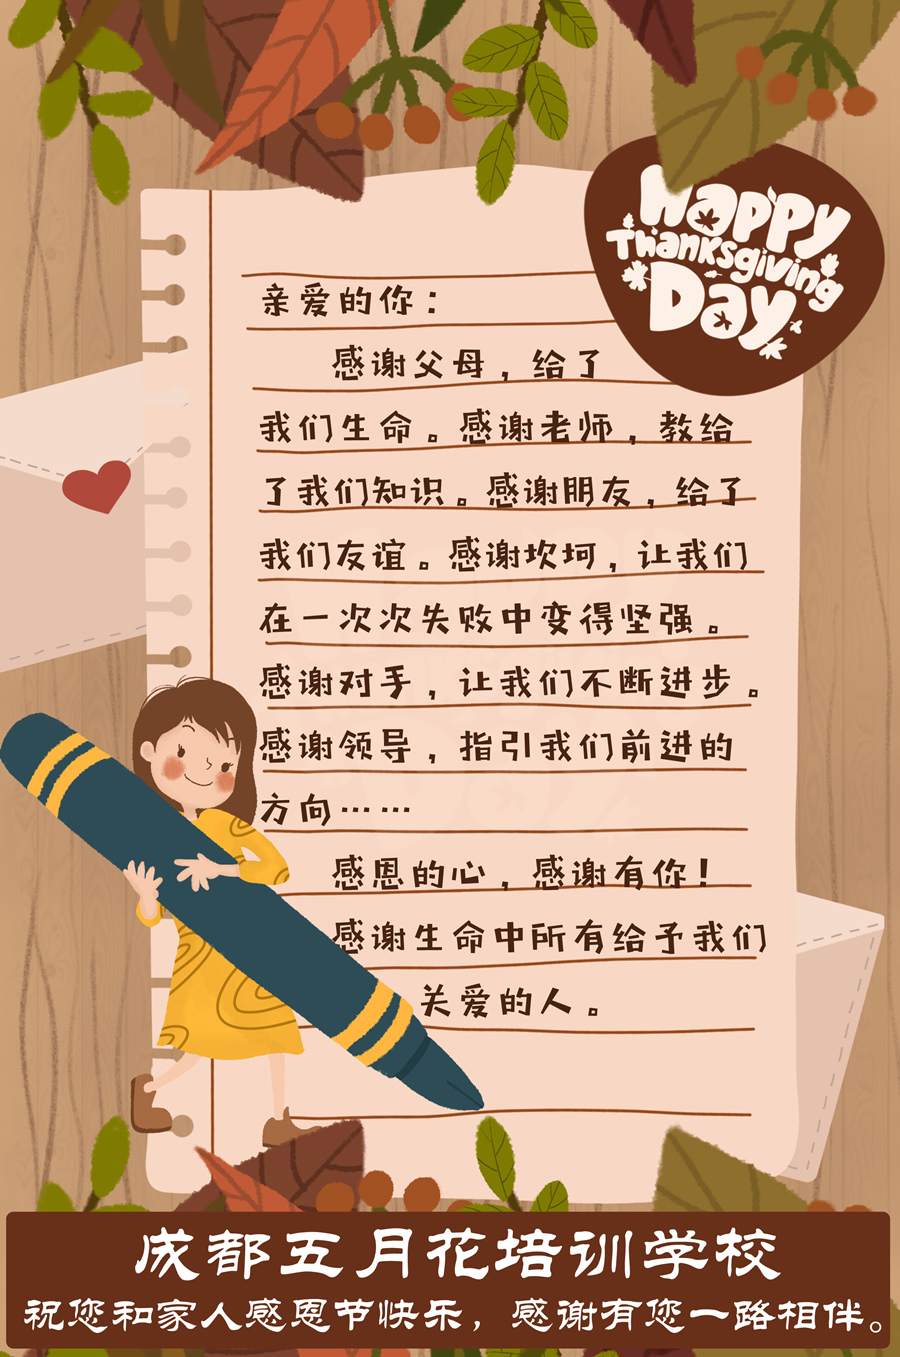 Happy
Thanksgiving
Day
亲爱的你：
感谢父母，给了
我们生命。感谢老师，教给
了我们知识。感谢朋友，给了
我们友谊。感谢坎坷，让我们
在一次次失败中变得坚强。
感谢对手，让我们不断进步。
感谢领导，指引我们前进的
方向……
感恩的心，感谢有你！
感谢生命中所有给予我们
关爱的人。
成都五月花培训学校
祝您和家人感恩节快乐，感谢有您一路相伴。